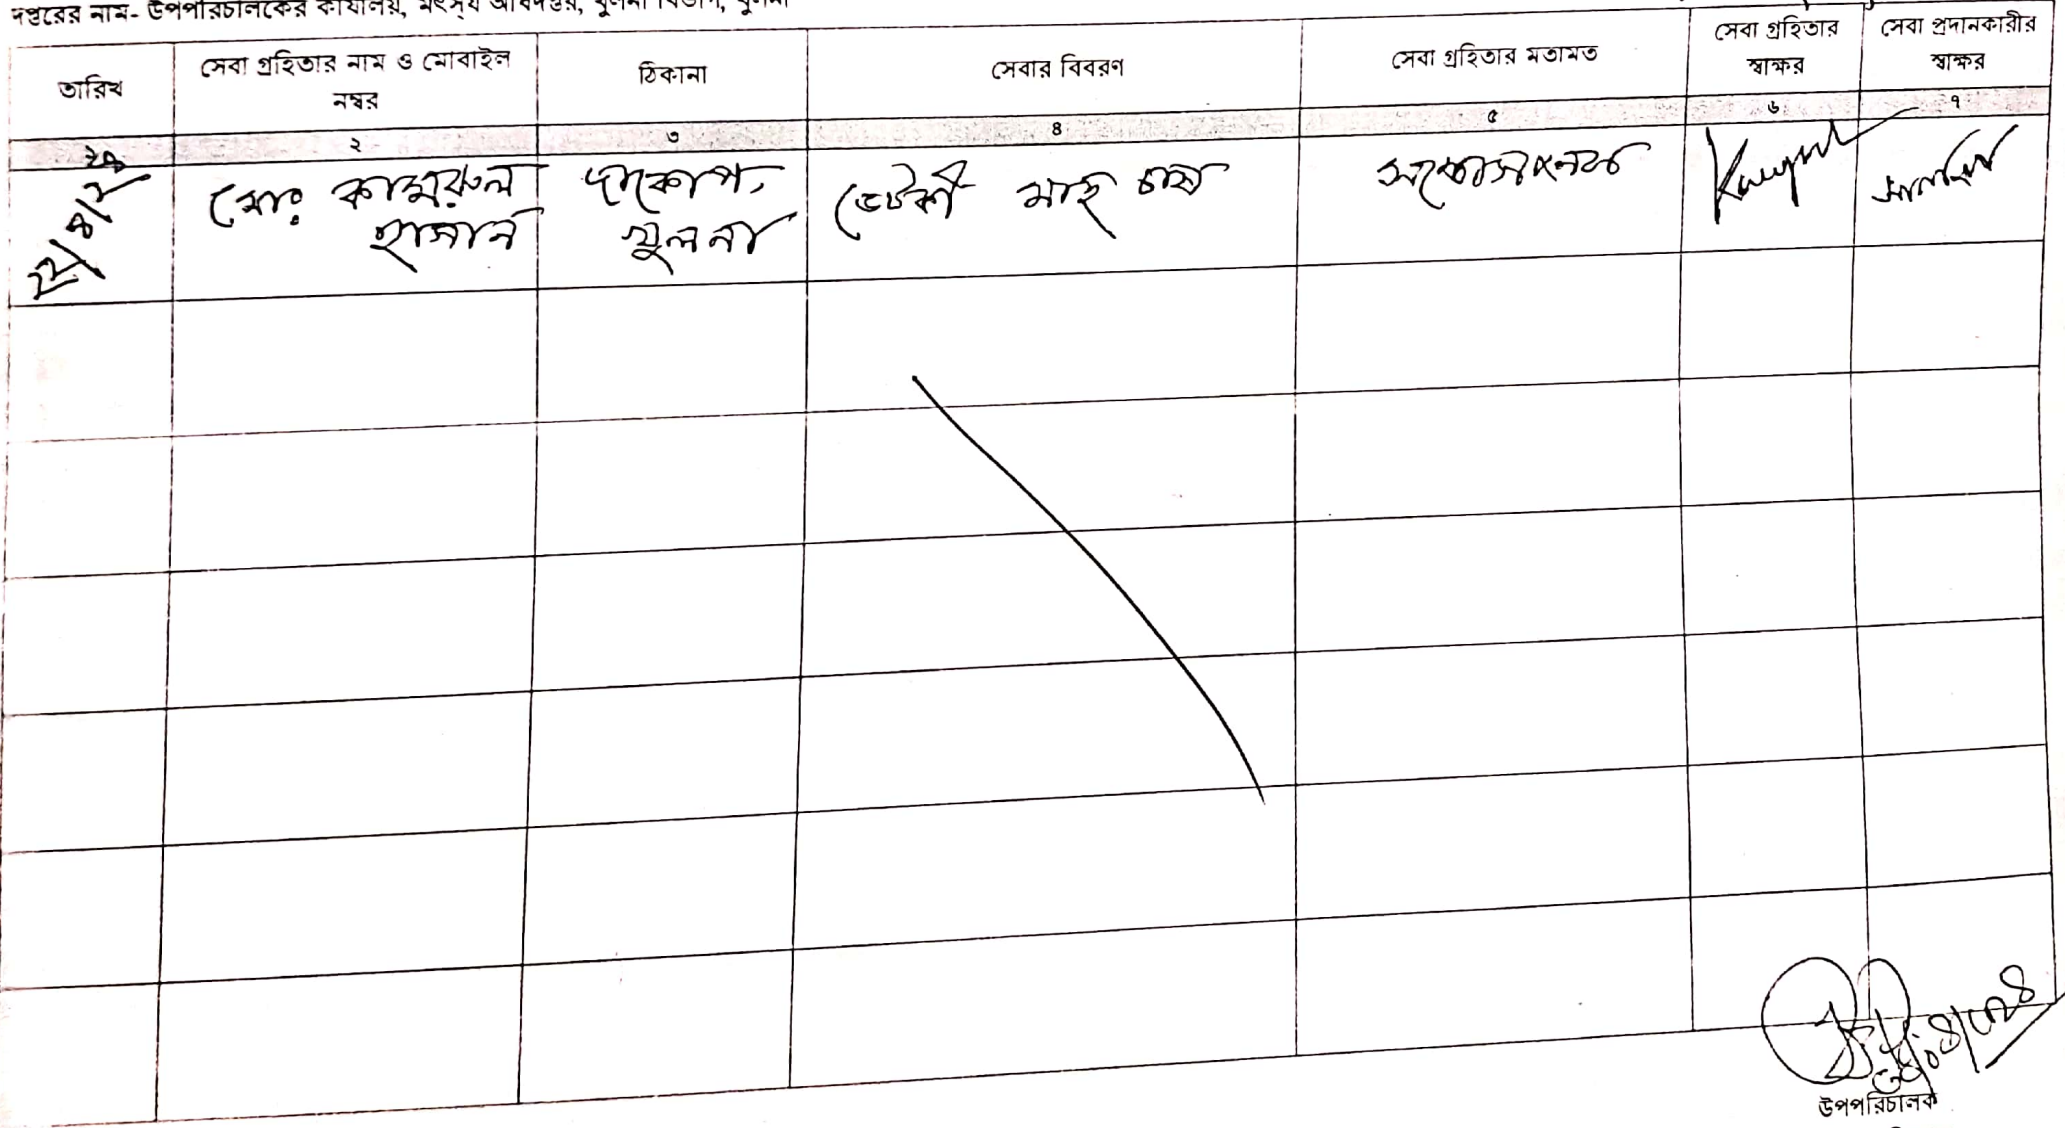 দপ্তরের নাম- উপপরিচালকের কার্যালয়, মৎস্য অধিদপ্তর, খুলনা বিভাগ, খুলনা
তারিখ
সেবা গ্রহিতার নাম ও মোবাইল
নম্বর
ঠিকানা
সেবার বিবরণ
সেবা গ্রহিতার মতামত
সেবা গ্রহিতার
স্বাক্ষর
সেবা প্রদানকারীর
স্বাক্ষর
২ ৩ ৪ ৫ ৬ ৭
মোঃ কামরুল
হাসান
দাকোপ,
খুলনা
ভেটকী মাছ চাষ
সন্তোসজনক
উপপরিচালক